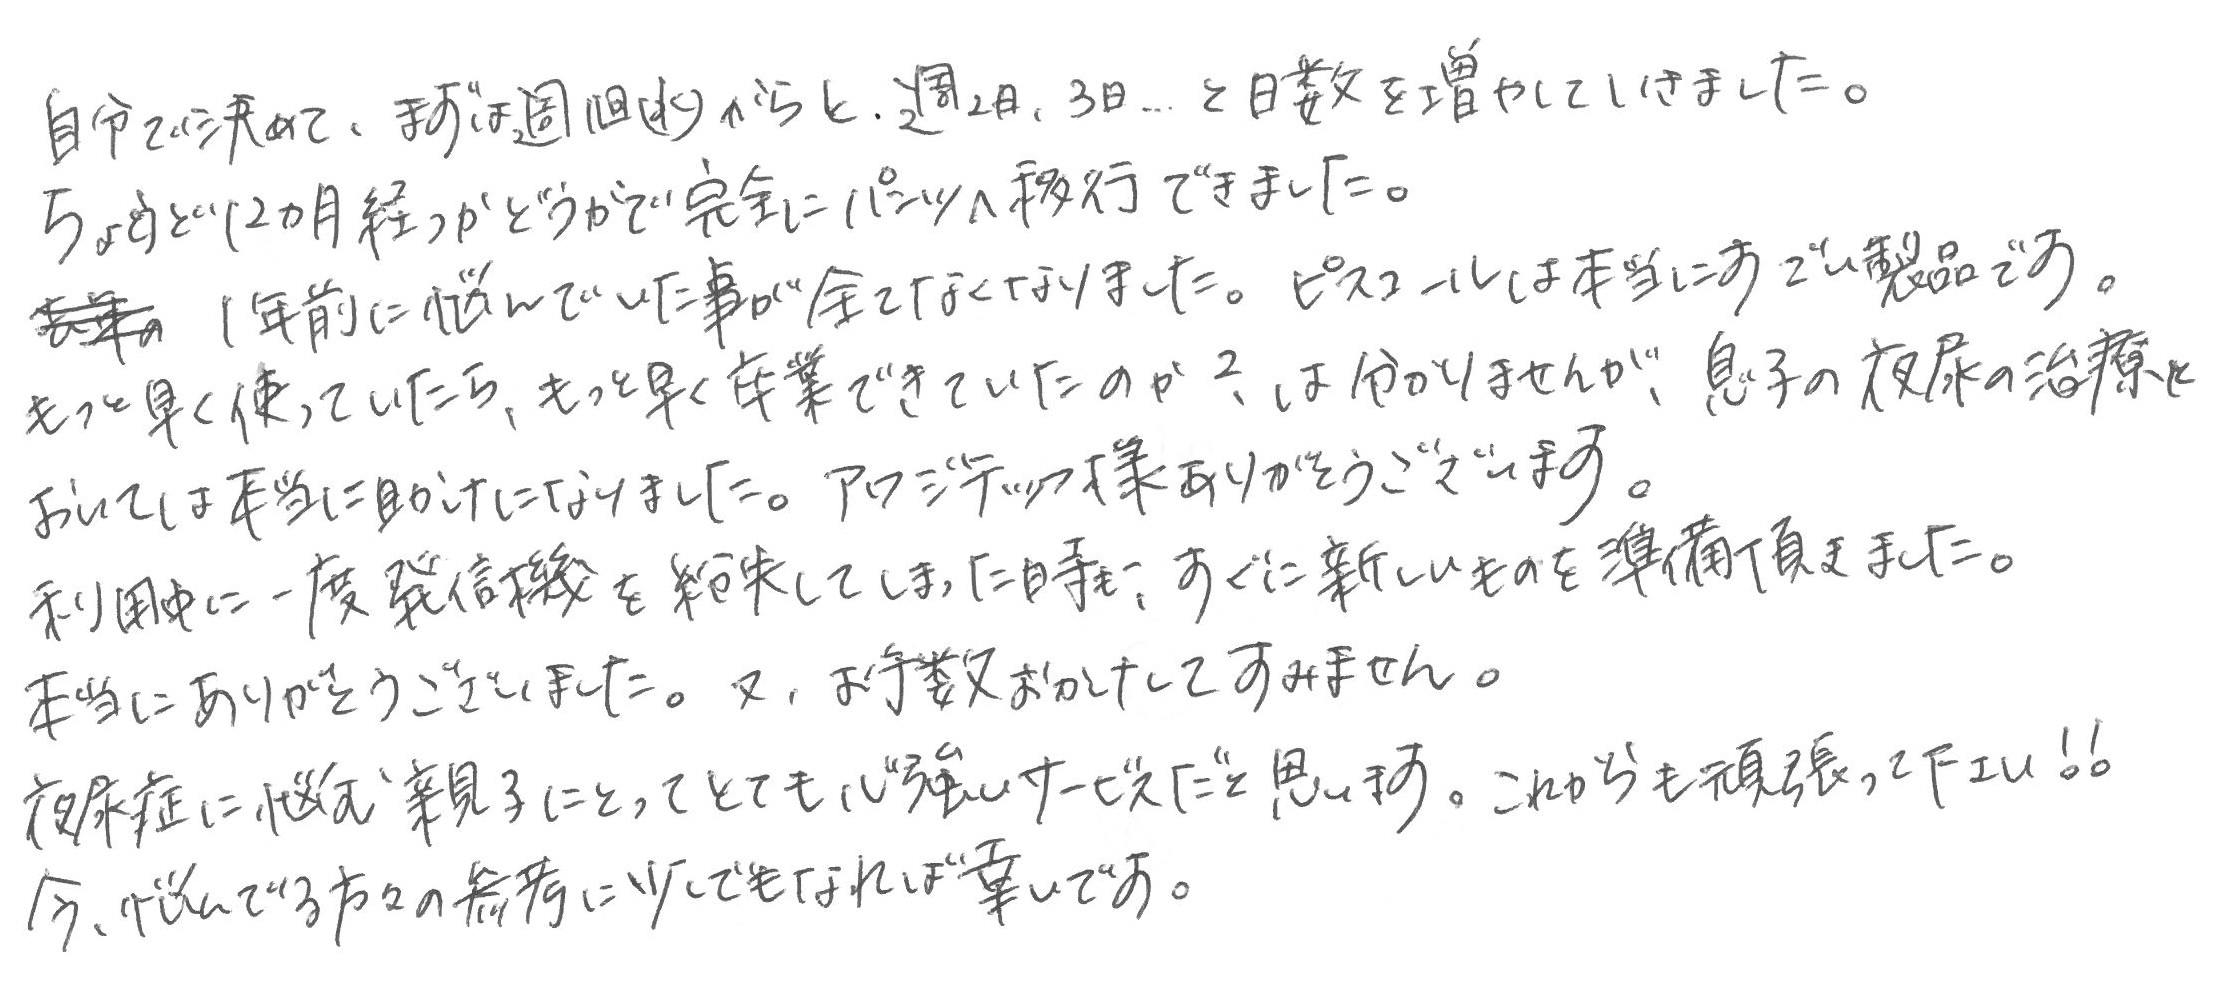 自分で決めて、まずは週1回(水)からと、週2日、3日…と日数を増やしていきました。
ちょうど12カ月経つかどうかで完全にパンツへ移行できました。
1年前に悩んでいた事が全てなくなりました。ピスコールは本当にすごい製品です。
もっと早く使っていたら、もっと早く卒業できていたのか?は分かりませんが、息子の夜尿の治療に
おいては本当に助けになりました。アワジテック様ありがとうございます。
利用中に一度発信機を紛失してしまった時も、すぐに新しいものを準備頂きました。
本当にありがとうございました。又、お手数おかけしてすみません。
夜尿症に悩む親子にとってとても心強いサービスだと思います。これからも頑張って下さい!!
今、悩んでる方々の参考に少しでもなれば幸いです。